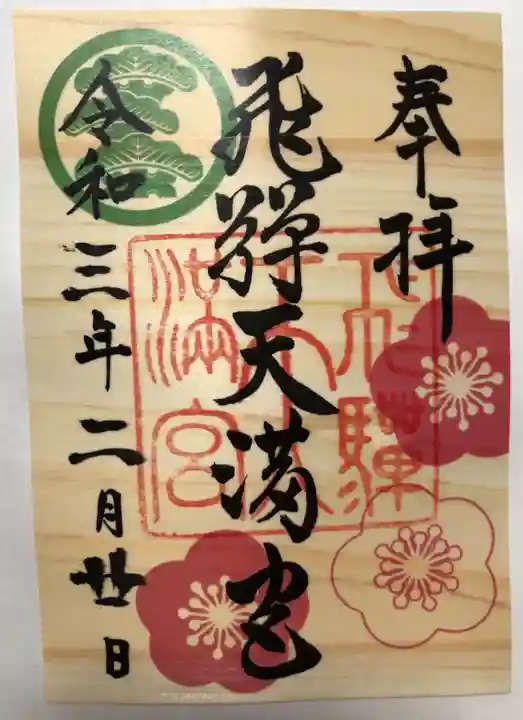 奉拝
飛騨天満宮
飛騨天満宮
令和三年二月廿日